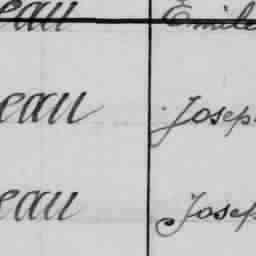 eau Emile
eau Josep
eau Josep